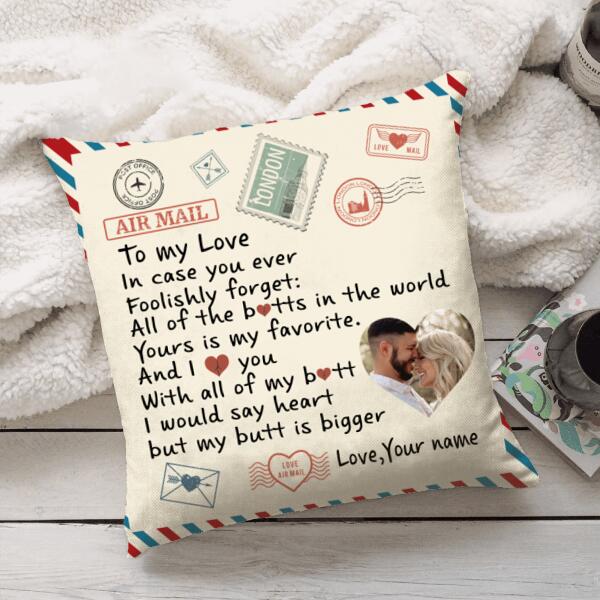 POST OFFICE
POST OFFICE
AIR MAIL
LONDON
LOVE MAIL
LONDON LONDON
To my Love
In case you ever
Foolishly forget:
All of the b♥tts in the world
Yours is my favorite.
And I ♥ you
With all of my b♥tt
I would say heart
but my butt is bigger
Love,Your name
LOVE
AIR MAIL